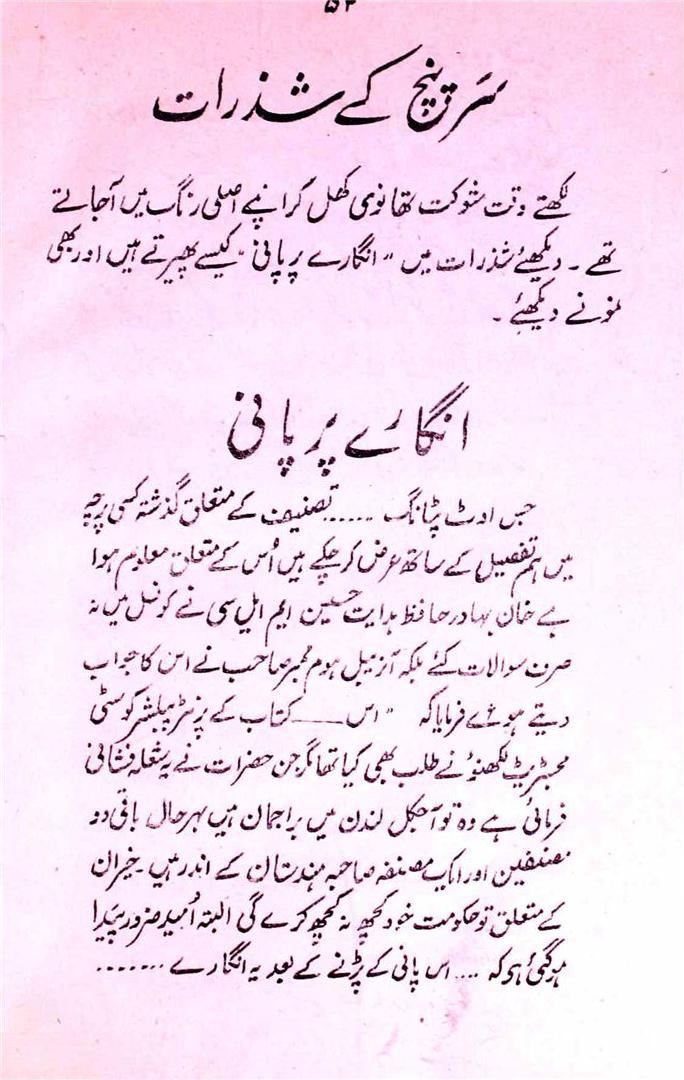 ۵۲
سَر پنچ کے شذرات
لکھتے وقت شوکت تھانوی کھل کر اپنے اصلی رنگ میں آجاتے
تھے ۔ دیکھئے شذرات میں "انگارے پر پانی" کیسے پھیرتے ہیں اور بھی
نمونے دیکھئے ۔
انگارے پر پانی
جس اوٹ پٹانگ ...... تصنیف کے متعلق گذشتہ کسی پرچہ
میں ہم تفصیل کے ساتھ عرض کر چکے ہیں اُس کے متعلق معلوم ہوا
ہے خان بہادر حافظ ہدایت حسین ایم ایل سی نے کونسل میں نہ
صرف سوالات کئے بلکہ آنریبل ہوم ممبر صاحب نے اس کا جواب
دیتے ہوئے فرمایا کہ "اس ـــــ کتاب کے پرنٹر پبلشر کو سٹی
مجسٹریٹ لکھنؤ نے طلب بھی کیا تھا مگر جن حضرات نے یہ شعلہ فشانی
فرمائی ہے وہ تو آجکل لندن میں براجمان ہیں بہر حال باقی دو
مصنفین اور ایک مصنفہ صاحبہ ہندستان کے اندر ہیں ۔ خیر ان
کے متعلق تو حکومت خود کچھ نہ کچھ کرے گی البتہ اُمید ضرور پیدا
ہو گئی ہو کہ .... اس پانی کے پڑنے کے بعد یہ انگارے .......